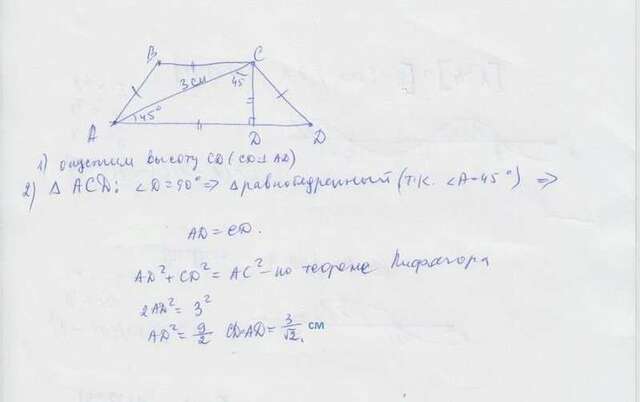 B
C
3 см
45
45°
A
D
D
1) опустим высоту CD (CD⊥AD)
2) △ ACD: ∠D=90° => △ равнобедренный (т.к. ∠A=45°) =>
AD = CD.
AD² + CD² = AC² - по теореме Пифагора
2AD² = 3²
AD² = 9/2 CD=AD= 3/√2. см